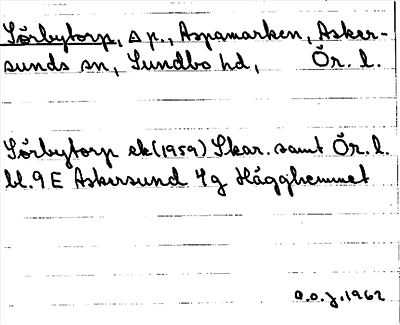 Sörbytorp, Δ p., Aspamarken, Asker-
sunds sn, Sundbo hd, Ör. l.
Sörbytorp ek (1959) Skar. samt Ör. l.
bl. 9 E Askersund 4g Hägghemmet
a.o.j. 1962